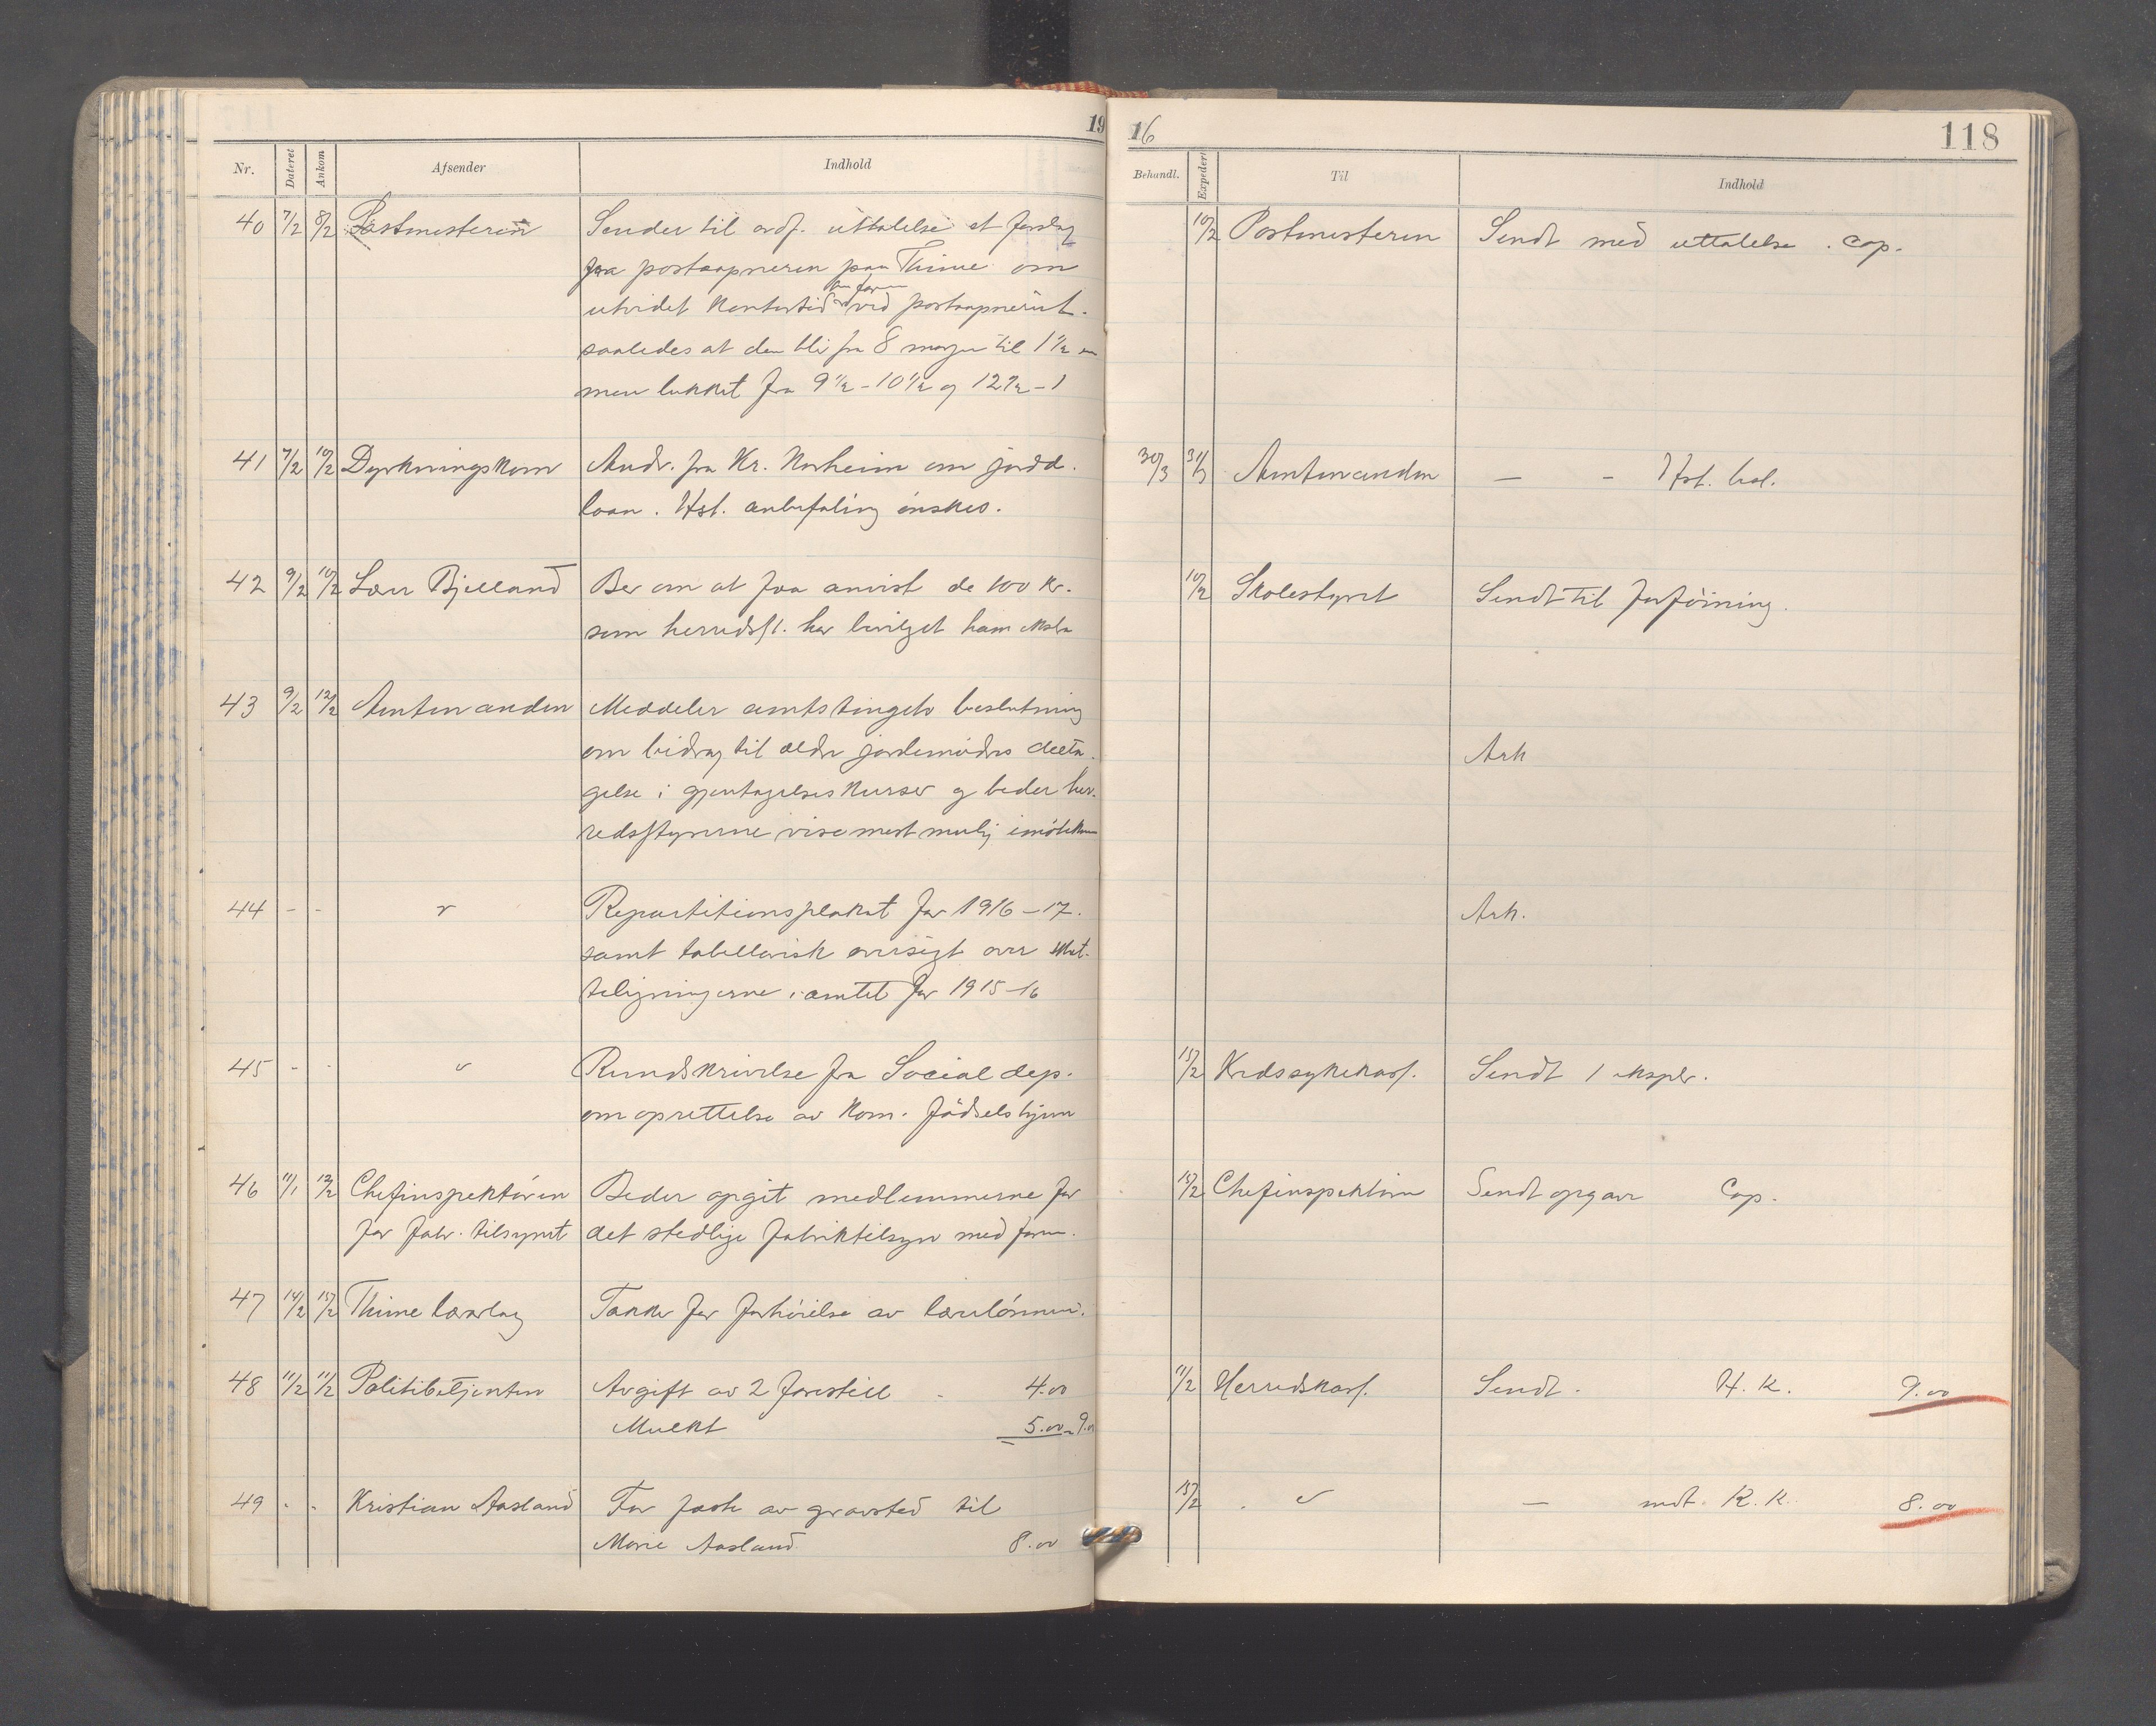 19 16 118
Nr. Dateret Ankom Afsender Indhold Behandl. Expedert Til Indhold
40 7/2 8/2 Postmesteren Sender til ordf. uttalelse et forslag 10/2 Postmesteren Sendt med uttalelse . Cop.
fra postaapneren paa Thime om
utvidet Kontortid ved postaapneriet.
saaledes at den bli fra 8 morgen til 1 1/2
men lukket fra 9 1/2 - 10 1/2 og 12 1/2 - 1
41 7/2 10/2 Dyrkningskom Andr. fra Kr. Norheim om jordd. 30/3 31/3 Amtmanden — - Hst. besl.
laan. Hst. anbefaling ønskes.
42 9/2 10/2 Lærer Bjelland Ber om at faa anvist de 100 Kr. 10/2 Skolestyret Sendt til forføining.
som herredsst. har bevilget ham ekstra
43 9/2 12/2 Amtmanden Meddeler amtstingets beslutning
om bidrag til ældre jordemødres delta- Ark
gelse i gjentagelseskurser og beder her-
redsstyrerne vise mest mulig imøtekom
44 - - " Repartitionsplakat for 1916-17. Ark.
samt tabellarisk oversigt over skat-
teligningerne i amtet for 1915-16
45 - - " Rundskrivelse fra Social dep. 15/2 Kredssykekass. Sendt 1 ekspl.
om oprettelse av Kom. fødselshjem
46 11/1 12/2 Chefinspektøren Beder opgit medlemmerne for 15/2 Chefinspektøren Sendt opgave Cop.
for fabr. tilsynet det stedlige fabriktilsyn med form.
47 14/2 15/2 Thime lærerlag Takker for forhøielse av lærerlønnen.
48 11/2 11/2 Politibetjenten Avgift av 2 forestill - 4.00 11/2 Herredskass. Sendt. H. K. 9.00
Mulkt 5.00 - 9.00
49 - - Kristian Aasland For fæste av gravsted til 15/2 " — mdt. K. K. 8.00
Marie Aasland 8.00